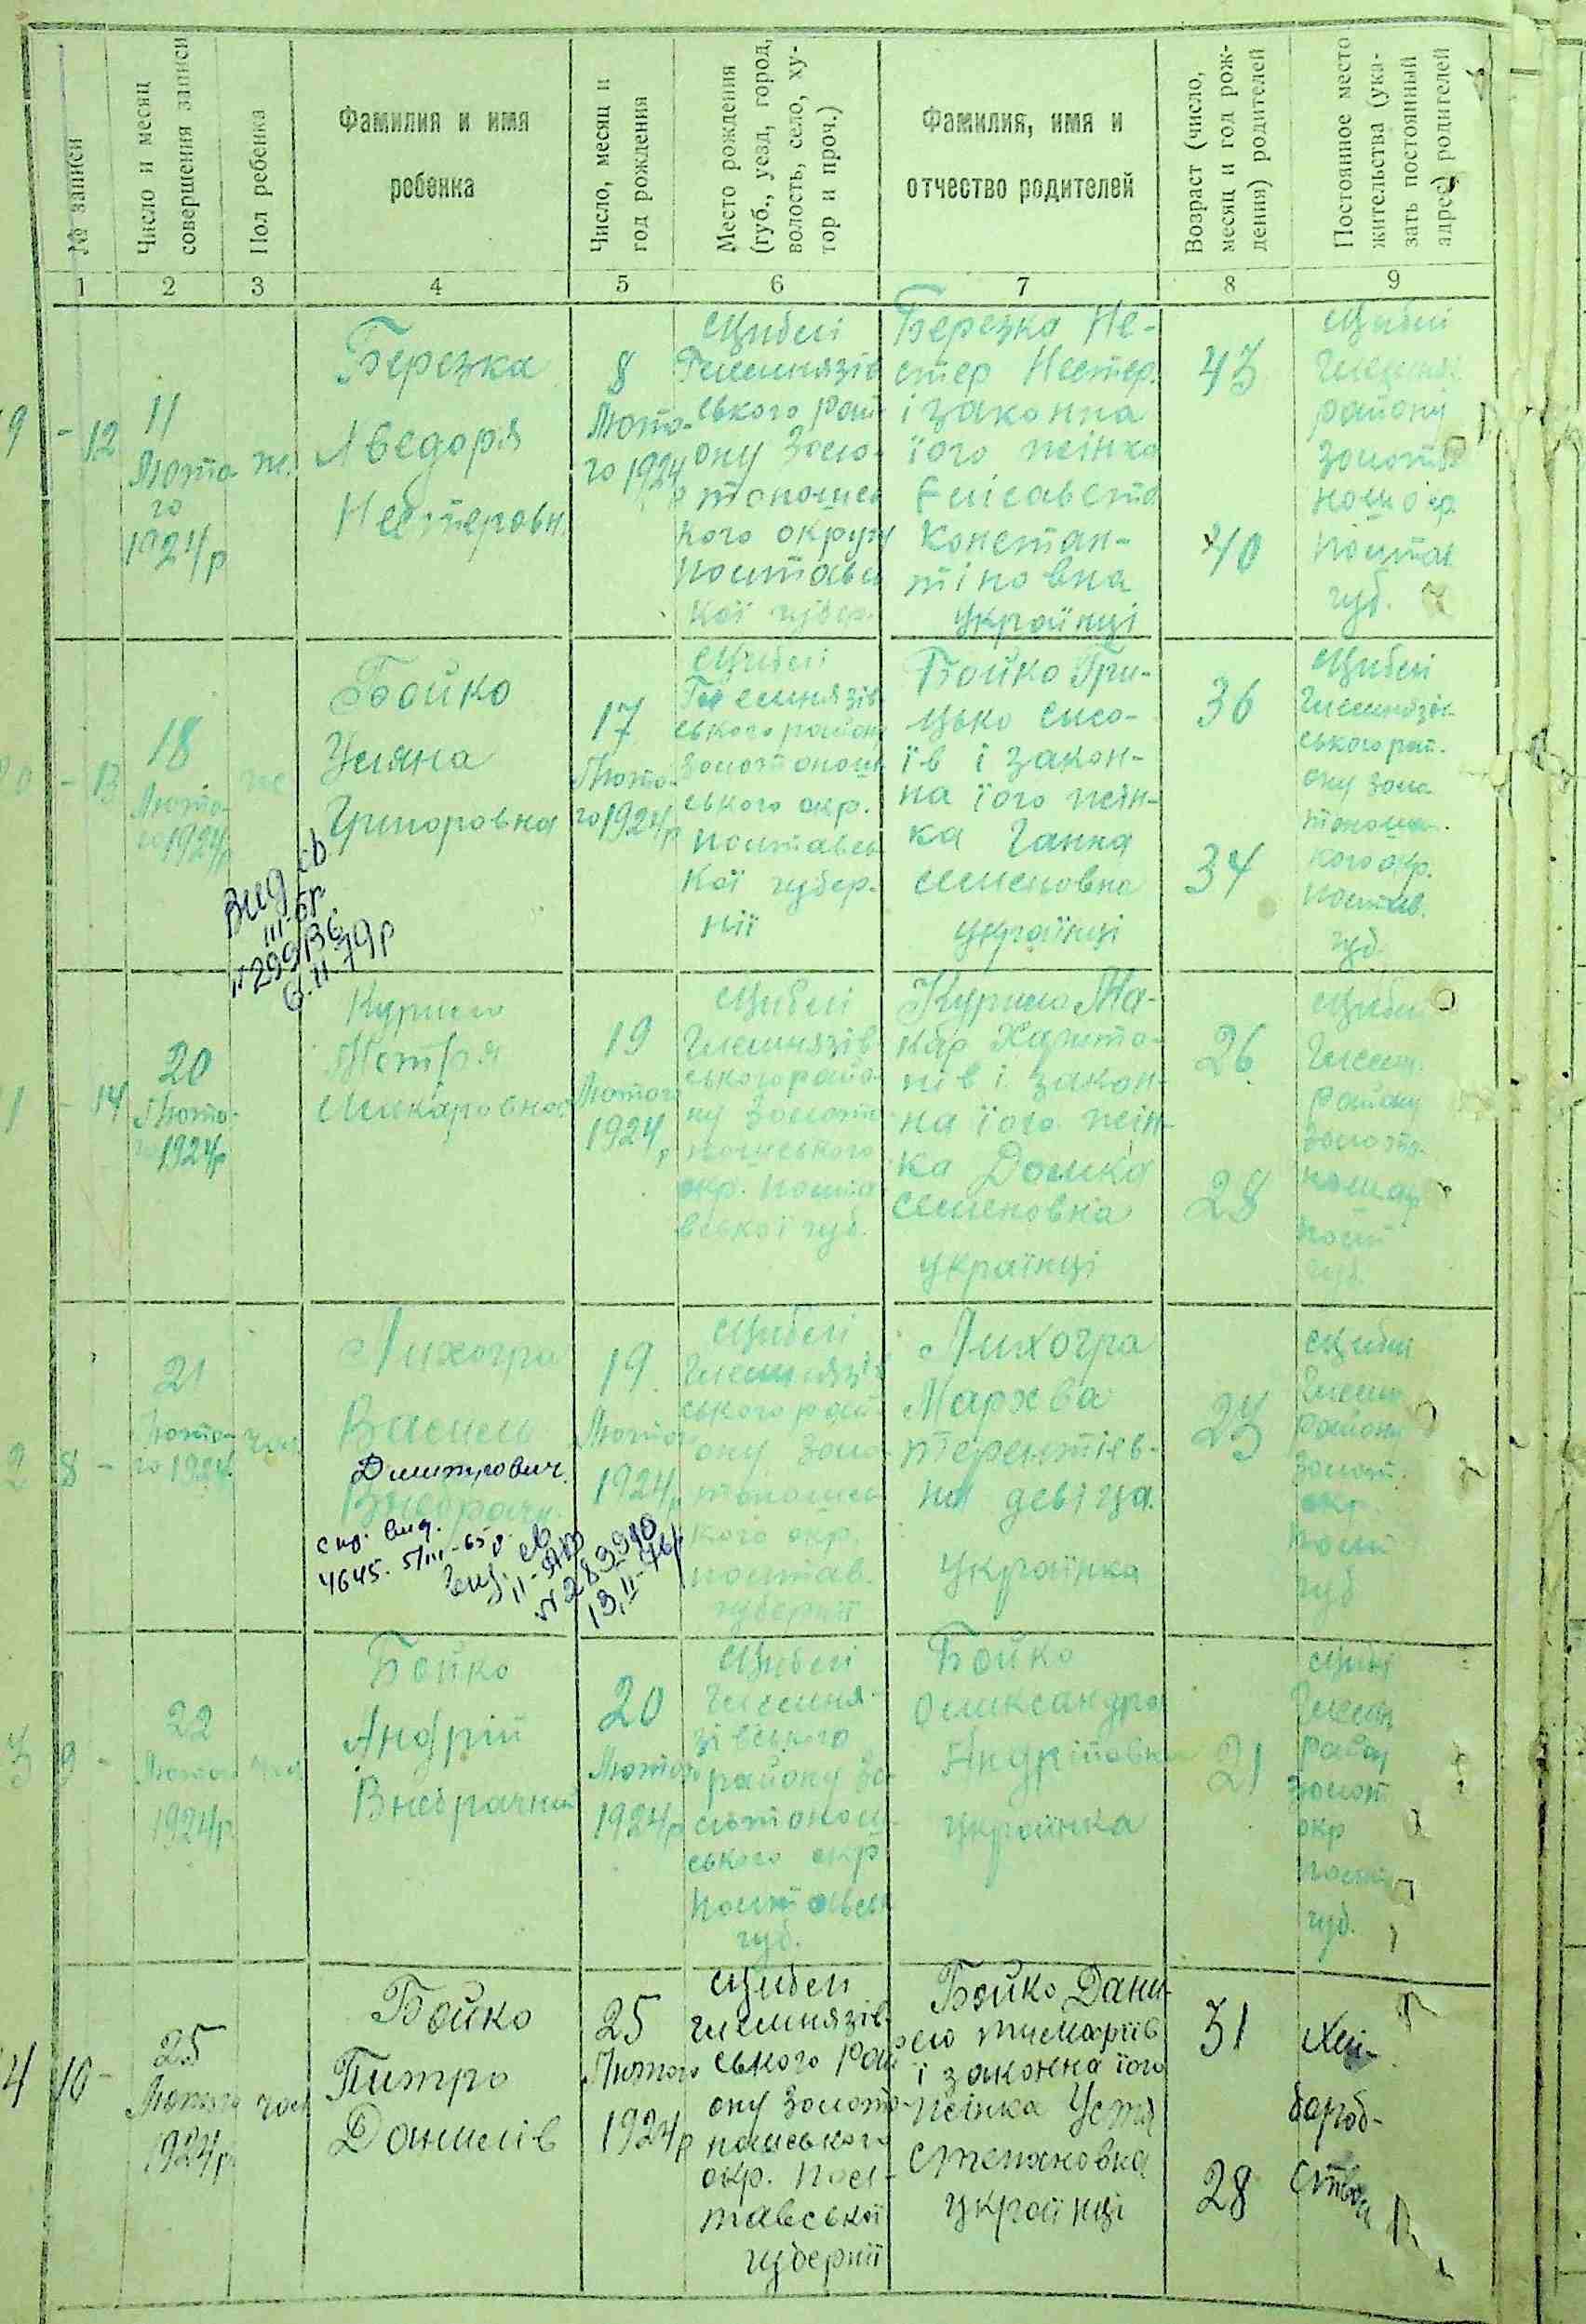 № записи
Число и месяц
совершения записи
Пол ребенка
Фамилия и имя
ребенка
Число, месяц и
год рождения
Место рождения
(губ., уезд, город,
волость, село, ху-
тор и проч.)
Фамилия, имя и
отчество родителей
Возраст (число,
месяц и год рож-
дения) родителей
Постоянное место
жительства (ука-
зать постоянный
адрес) родителей
1 2 3 4 5 6 7 8 9
9 - 12
11
Люто-
го
1924 р
ж.
Березка
Явдоря
Нестеровн
8
Люто-
го 1924
р
Циблі
Гельмязів
ського рай-
ону Золо-
тоношсь
кого округи
Полтавсь
кої губер.
Березка Не-
стер Нестер.
і законна
їого жінка
Елісавета
Констан-
тіновна
українці
43
40
Циблі
району
Золото
нош окр.
Полтав
губ.
- 13
18
Люто-
го 1924 р
же
Бойко
Уляна
Григоровна
Вид св
III-БР
№ 299136
6.II-79р
17
Люто-
го 1924 р
Циблі
Гельмязів
ського району
Золотонош
ського окр.
Полтавсь
кої губер.
нії
Бойко Гри-
цько Сисо-
їв і закон-
на їого жін-
ка Ганна
Семеновна
українці
36
34
Циблі
Гельмязів-
ського рай-
ону Золо
тонош.
кого окр.
Полтав.
губ.
1 - 14
20
Люто-
го 1924 р
Курило
Мотря
Макаровна
19
Лютого
1924
р
Циблі
Гельмязів
ського райо-
ну Золото
ношського
окр. Полта
вської губ.
Курило Ма-
кар Харито-
нів і закон-
на їого жін-
ка Домка
Семеновна
українці
26
28
Циблі
Гельм.
району
Золото-
нош окр
Полт
губ.
2 8 -
21
Люто-
го 1924
чол
Лихогра
Василь
Дмитрович
Внебрачн
4645. 5/III-65 р.
II-ЯР
№ 289910
13.II-76р
19
Лютого
1924 р
Циблі
Гельмязів
ського рай-
ону Золо-
тоношсь
кого окр.
Полтав.
губернії
Лихогра
Мархва
Терентіев-
на девіца
Українка
23
Циблі
Гельм
району
Золот.
окр.
Полт
губ
3 9 -
22
Лютого
1924 р
чол
Бойко
Андрій
Внебрачний
20
Лютого
1924 р
Циблі
Гельмя-
зівського
району Зо-
лотонош-
ського окр
Полтавсь
губ.
Бойко
Олександра
Андріївовна
українка
21
Циблі
Гельм
райо
Золот
окр
Полт
губ.
4 10 -
25
Лютого
1924 р
чол
Бойко
Питро
Данилів
25
Лютого
1924 р
Циблі
Гельмязів-
ського рай
ону Золото-
ношського
окр. Пол-
тавської
губернії
Бойко Дани-
ло Тимофіїв
і законна їого
жінка Устя
Степановна
українці
31
28
Хлі-
бороб-
ство